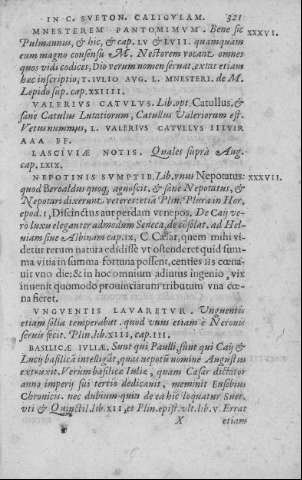 IN C. SVETON. CALIGVLAM. 321
MNESTEREM PANTOMIMVM. Bene sic XXXVI.
Pulmannus, & hic, & cap. LV & LVII. quamquam
eum magno consensu M. Nestorem vocant omnes
quos vidi codices. Dio verum nomen seruat. extat etiam
hæc inscriptio, T. IVLIO AVG. L. MNESTERI. de M.
Lepido sup. cap. XXIIII.
VALERIVM CATVLVM. Lib. opt. Catullus, &
sane Catulus Lutatiorum, Catullus Valeriorum est.
Vetus nummus, L. VALERIVS CATVLLVS IIIVIR
AAA FF.
LASCIVIÆ NOTIS. Quales supra Aug.
cap. LXIX.
NEPOTINIS SVMPTIB. Lib. vnus Nepotatus: XXXVII.
quod Beroaldus quoq, agnoscit, & sane Nepotatus, &
Nepotari dixerunt veteres: etiã Plin. Plura in Hor.
epod. I, Discinctus aut perdam vt nepos. De Caij ve-
ro luxu eleganter admodum Seneca, de cõsolat. ad Hel-
uiam siue Albinam cap. IX, C. Cæsar, quem mihi vi-
detur rerum natura edidisse vt ostenderet quid sum-
ma vitia in summa fortuna possent, centies HS cœna-
uit vno die: & in hoc omnium adiutus ingenio, vix
inuenit quomodo prouinciarum tributum vna cœ-
na fieret.
VNGVENTIS LAVARETVR. Vnguentis
etiam solia temperabat. quod vnus etiam è Neronis
seruis fecit. Plin. lib. XIII, cap. III.
BASILICÆ IVLIÆ. Sunt qui Paulli, sunt qui Caij &
Lucij basilicã intelligãt, quas nepotũ nomine Augustus
extruxit. Verùm basilicæ Iuliæ, quam Cæsar dictator
anno imperij sui tertio dedicauit, meminit Eusebius
Chronicis. nec dubium quin de ea hîc loquatur Suet.
vti & Quinctil. lib. XII, et Plin. epist. vlt. lib. V. Errat
X etiam